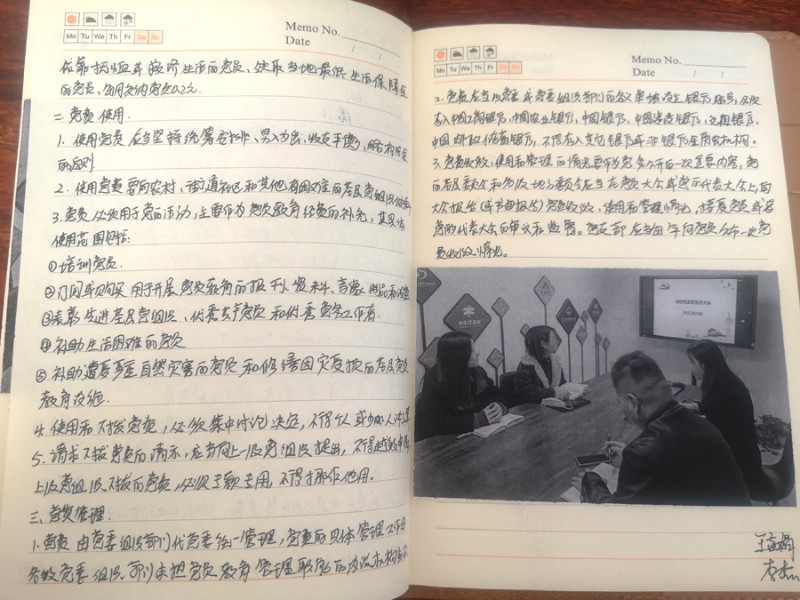 Memo No.
Mo Tu We Th Fr Sa Su
Date / /
依靠抚恤或救济生活的党员、领取当地最低生活保障金
的党员,每月交纳党费0.2元。
二、党费使用
1. 使用党费应当坚持统筹安排、量入为出、收支平衡、略有结余
的原则
2. 使用党费要向农村、街道社区和其他有困难的基层党组织倾斜
3. 党费必须用于党的活动,主要作为党员教育经费的补充,其具体
使用范围包括:
①培训党员.
②订阅或购买用于开展党员教育的报刊、资料、音像制品和设备
③表彰先进基层党组织、优秀共产党员和优秀党务工作者
④补助生活困难的党员
⑤补助遭受严重自然灾害的党员和修缮因灾受损的基层党员
教育设施.
4. 使用和下拨党费,必须集中讨论决定,不得个人或少数人说了算
5. 请求下拨党费的请示,应当向上一级党组织提出,不得越级申请
上级党组织下拨的党费,必须专款专用,不得挪作他用。
三、党费管理.
1. 党费由党委组织部门代党委统一管理,党费的具体管理工作由
各级党委组织部门承担党员教育管理职能的内设机构承办
Memo No.
Mo Tu We Th Fr Sa Su
Date / /
2. 党费应当以党委或党委组织部门的名义单独设立银行账号,必须
存入中国工商银行、中国农业银行、中国银行、中国建设银行、交通银行、
中国邮政储蓄银行,不得存入其它银行或非银行金融机构。
3. 党费收缴、使用和管理的情况要作为党务公开的一项重要内容,党
的基层委员会和各级地方委员会应当在党员大会或党的代表大会上向
大会报告(或书面报告)党费收缴、使用和管理情况,接受党员或党
的代表大会的审议和监督。党支部应当每年向党员公布一次党
费收缴情况。
2022年3月